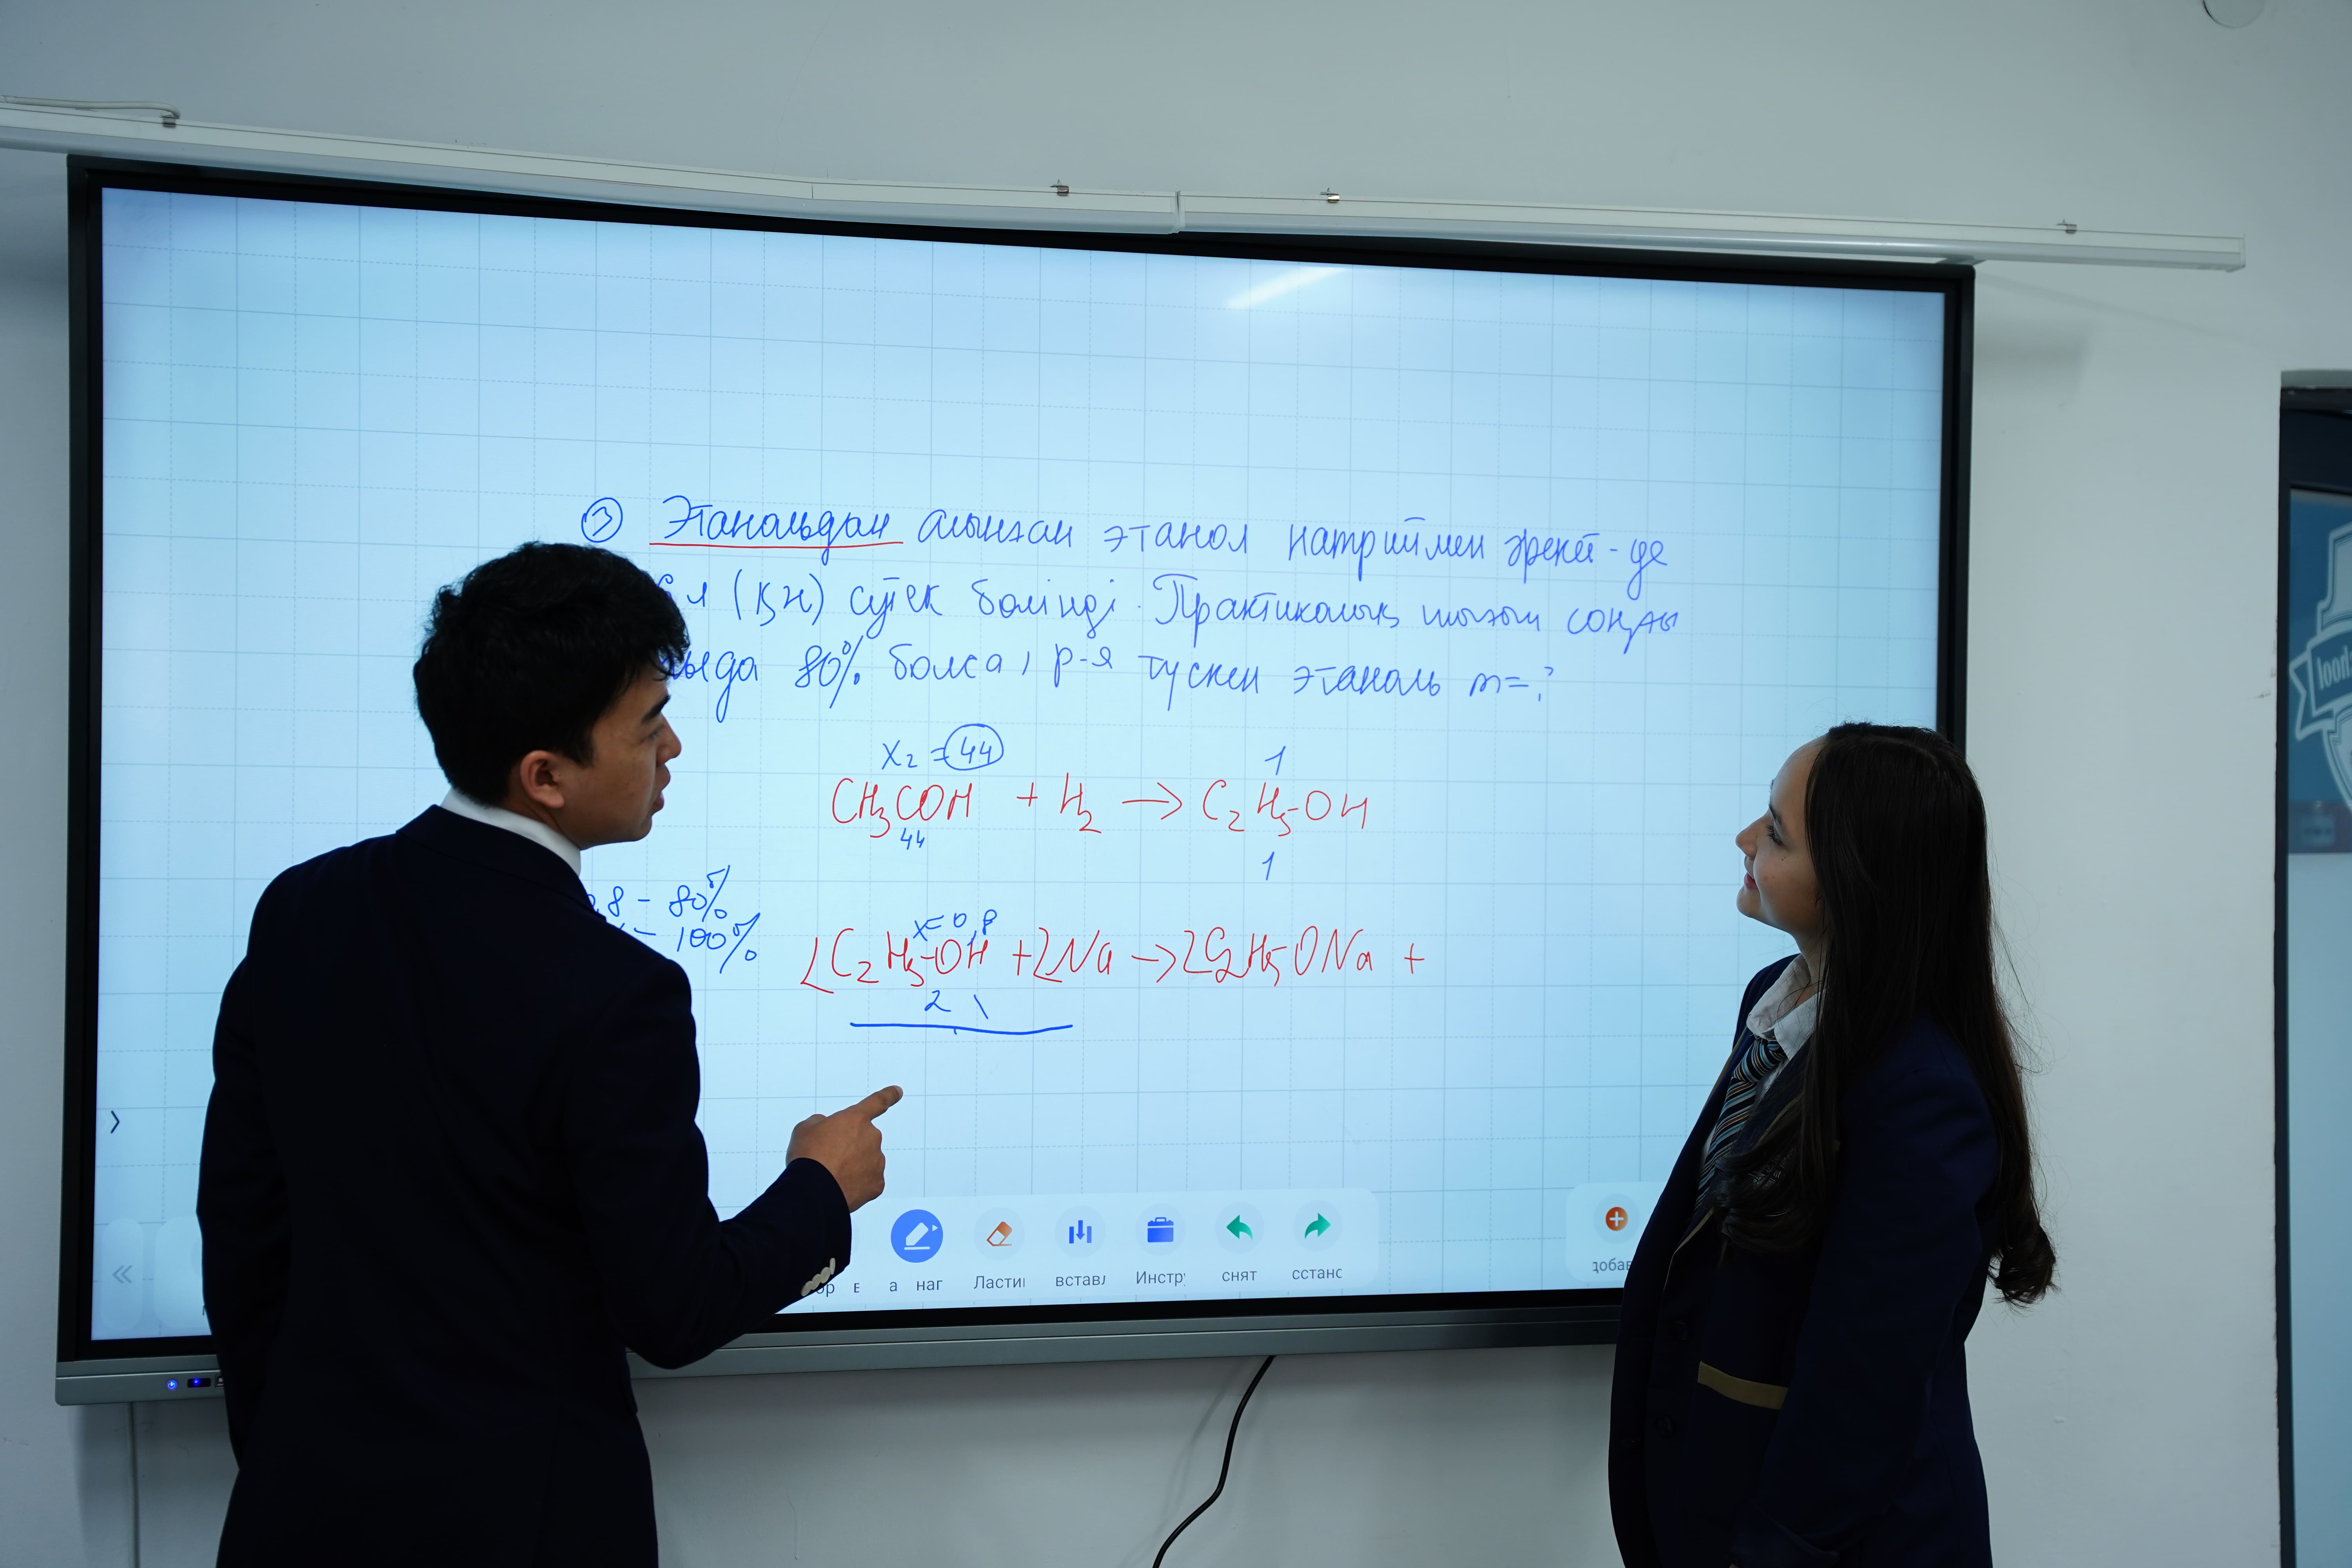 ③ Этанальдан алынған этанол натриймен әрекет-де
л (қн) сутек бөлінді. Практикалық шығым соңғы
80% болса, р-я түскен этаналь m=?
x₂ = 44
1
CH₃COH + H₂ → C₂H₅-OH
44
1
8 - 80%
- 100%
x=0,8
2C₂H₅-OH + 2Na → 2C₂H₅ONa +
2
наг
Ласти
встав
Инстр
снят
сстанс
добав
hool